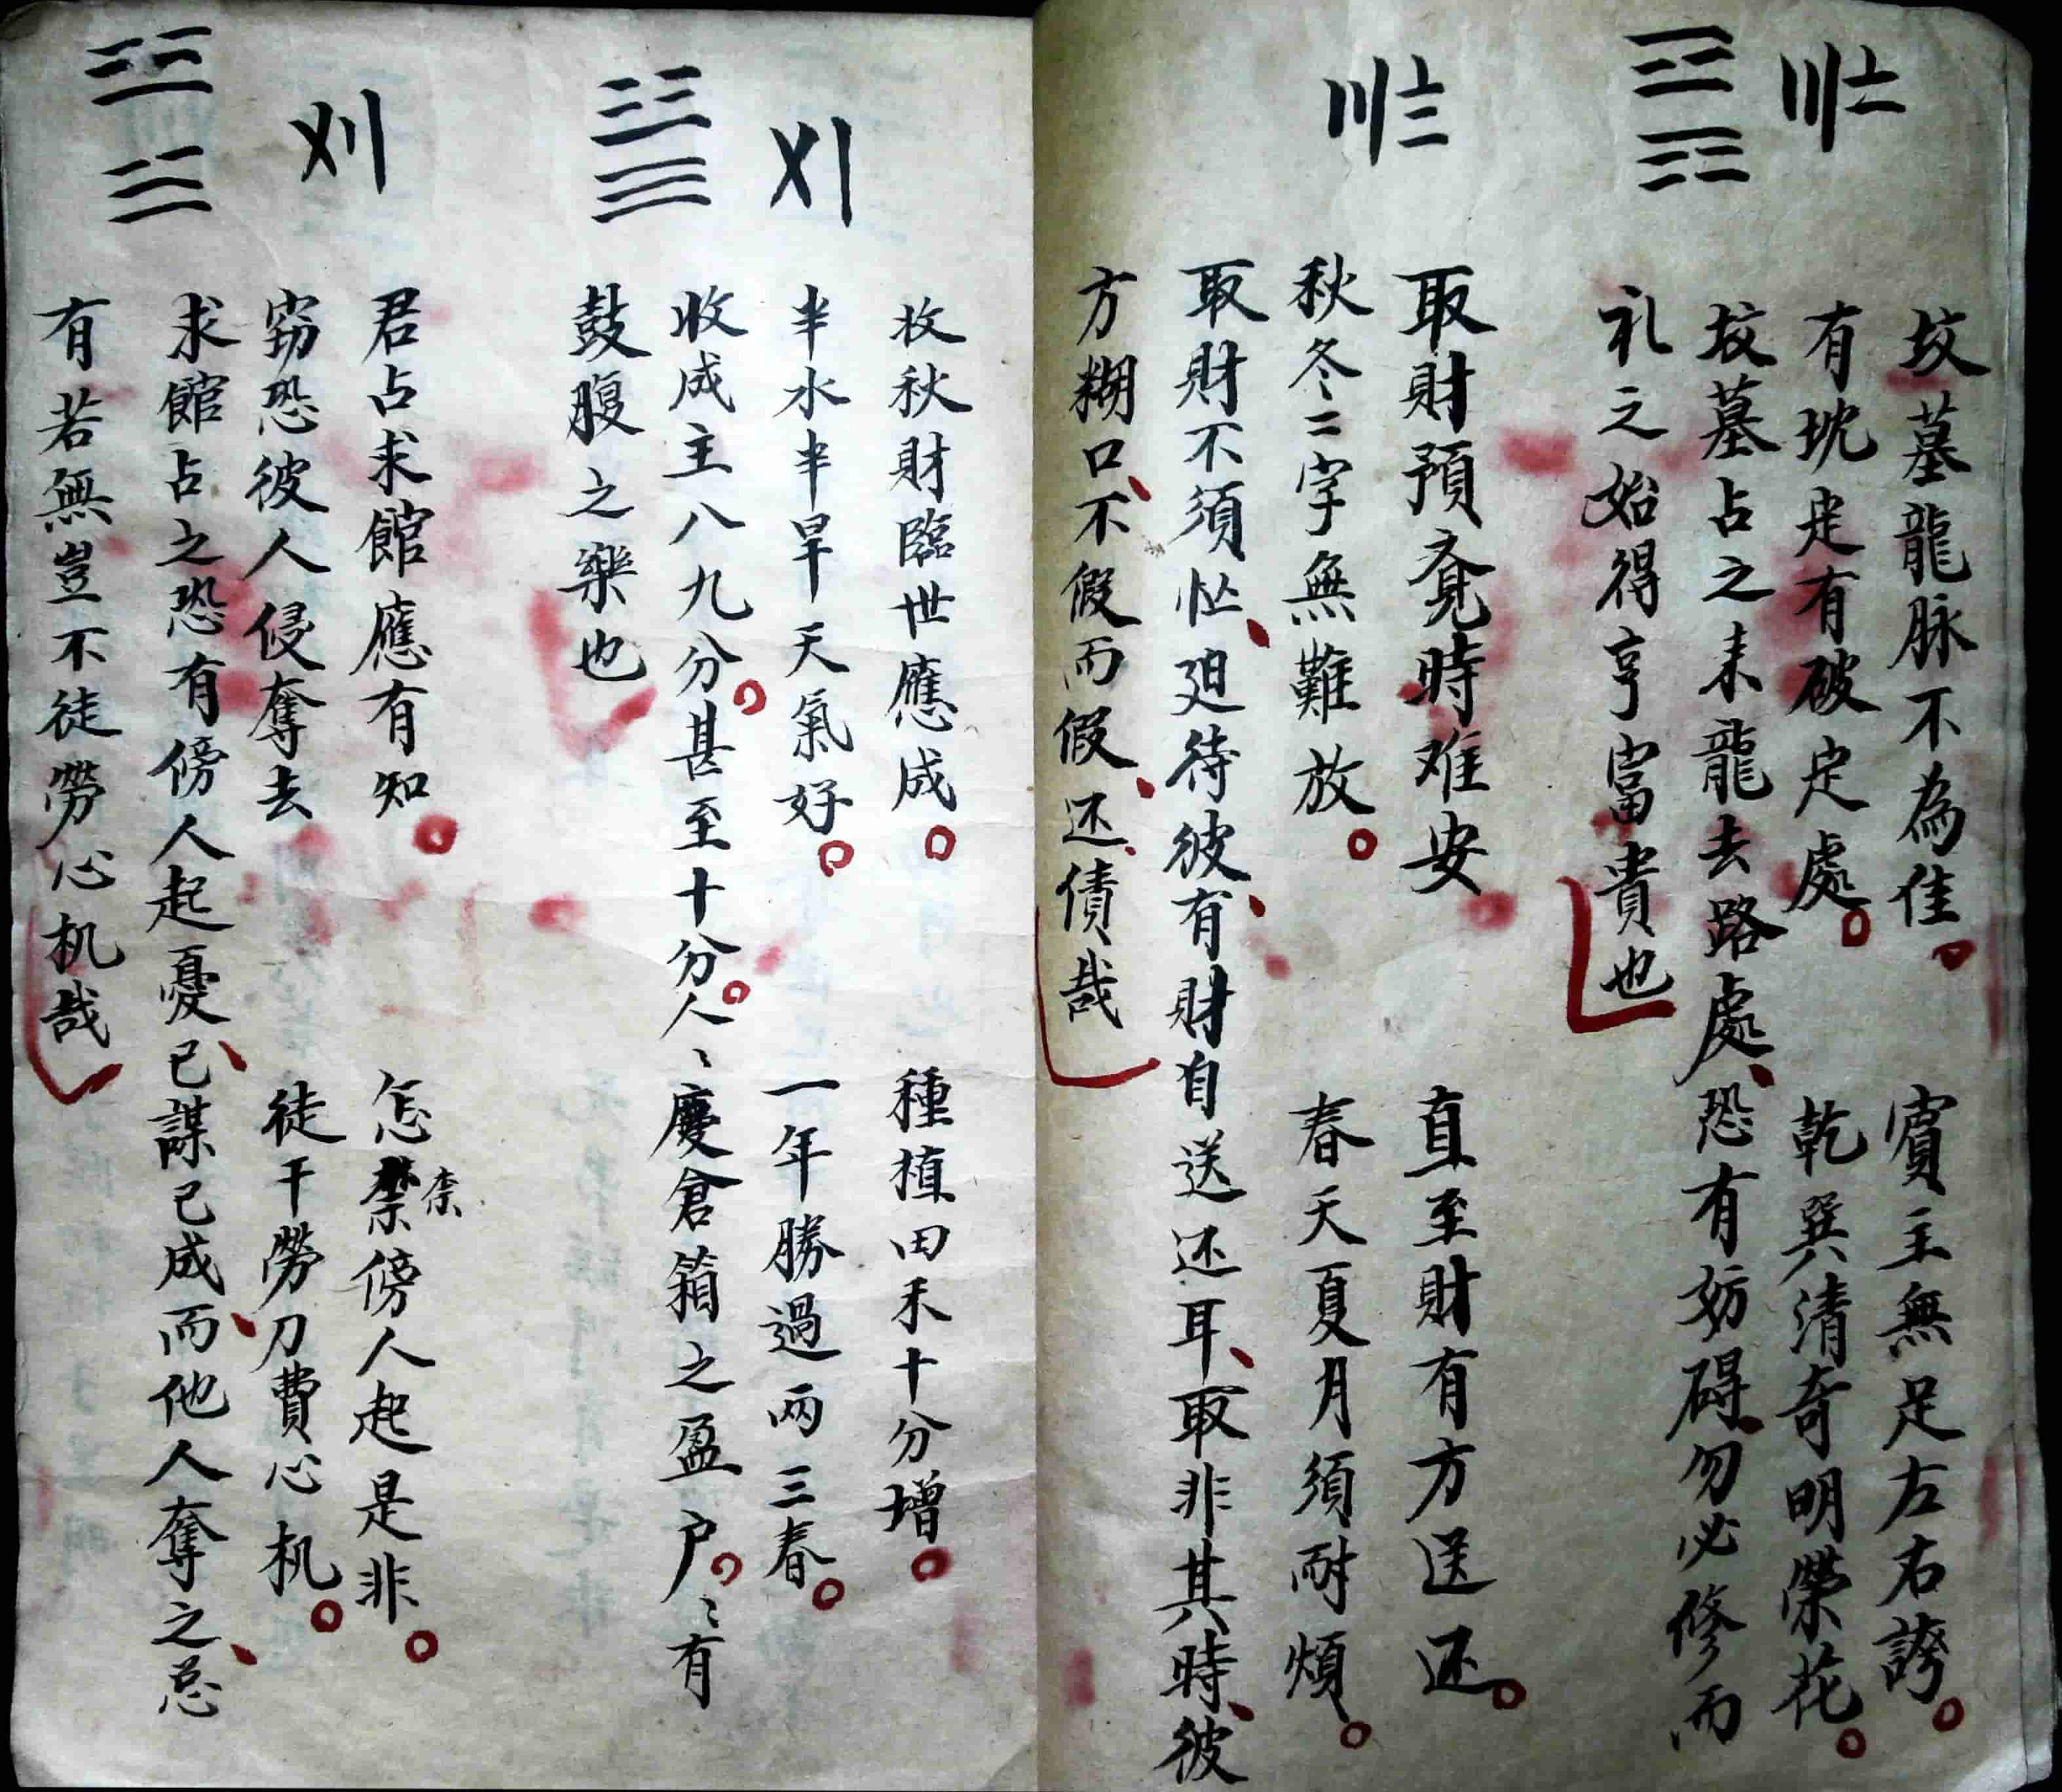 坟墓龍脉不為佳 賓主無足左右誇
有坟定有破定處 乾巽清奇明榮花
坟墓占之来龍去路處恐有妨碍勿必修而
礼之始得亨富貴也
取財預覔時难安 直至財有方送还
秋冬二字無難放 春天夏月須耐煩
取財不須忙廻待彼有財自送还耳取非其時彼
方糊口不假而假还債哉
牧秋財臨世應成 種植田禾十分增
半水半旱天氣好 一年勝過两三春
收成主八九分甚至十分人〻慶倉箱之盈户〻有
鼓腹之樂也
君占求館應有知 怎禁傍人起是非
窃恐彼人侵奪去 徒干勞刀費心机
求館占之恐有傍人起憂已謀已成而他人奪之忌
有若無豈不徒勞心机哉